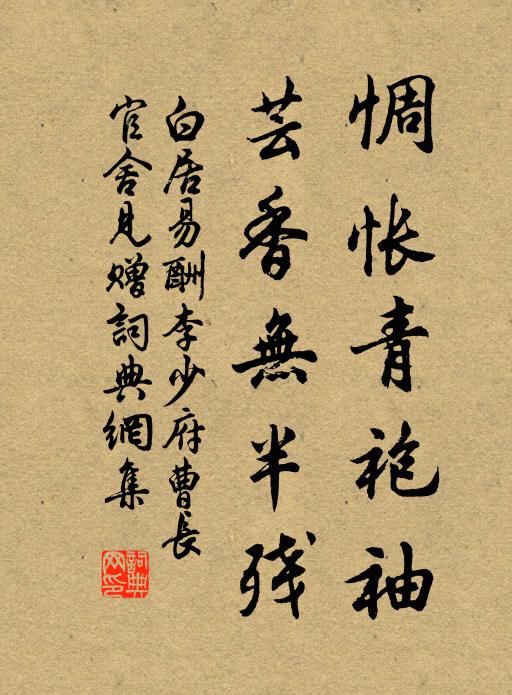 惆怅青袍袖
芸香無半残
白居易酬李少府曹長
官舍見贈詞典網集
詞典網印